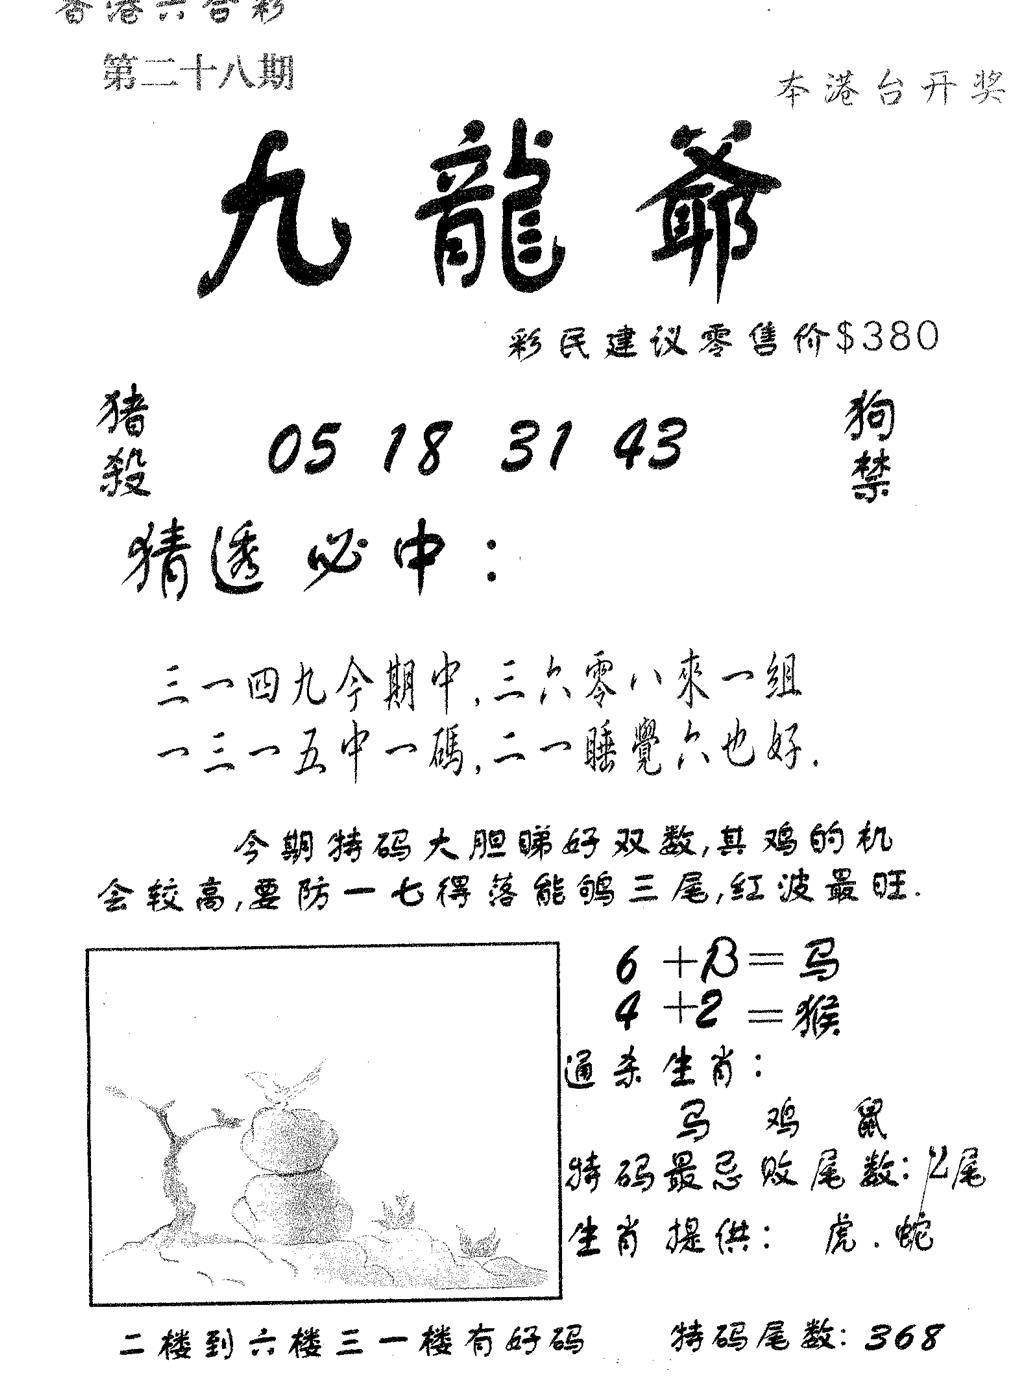 香港六合彩
第二十八期
本港台开奖
九龍爺
彩民建议零售价$380
猪殺 05 18 31 43 狗禁
猜透必中：
三一四九今期中,三六零八來一組
一三一五中一碼,二一睡覺六也好.
今期特码大胆睇好双数,其鸡的机
会较高,要防一七得落能鸲三尾,红波最旺.
6+13=马
4+2=猴
通杀生肖：
马 鸡 鼠
特码最忌败尾数：2尾
生肖提供：虎.蛇
二楼到六楼三一楼有好码 特码尾数：368